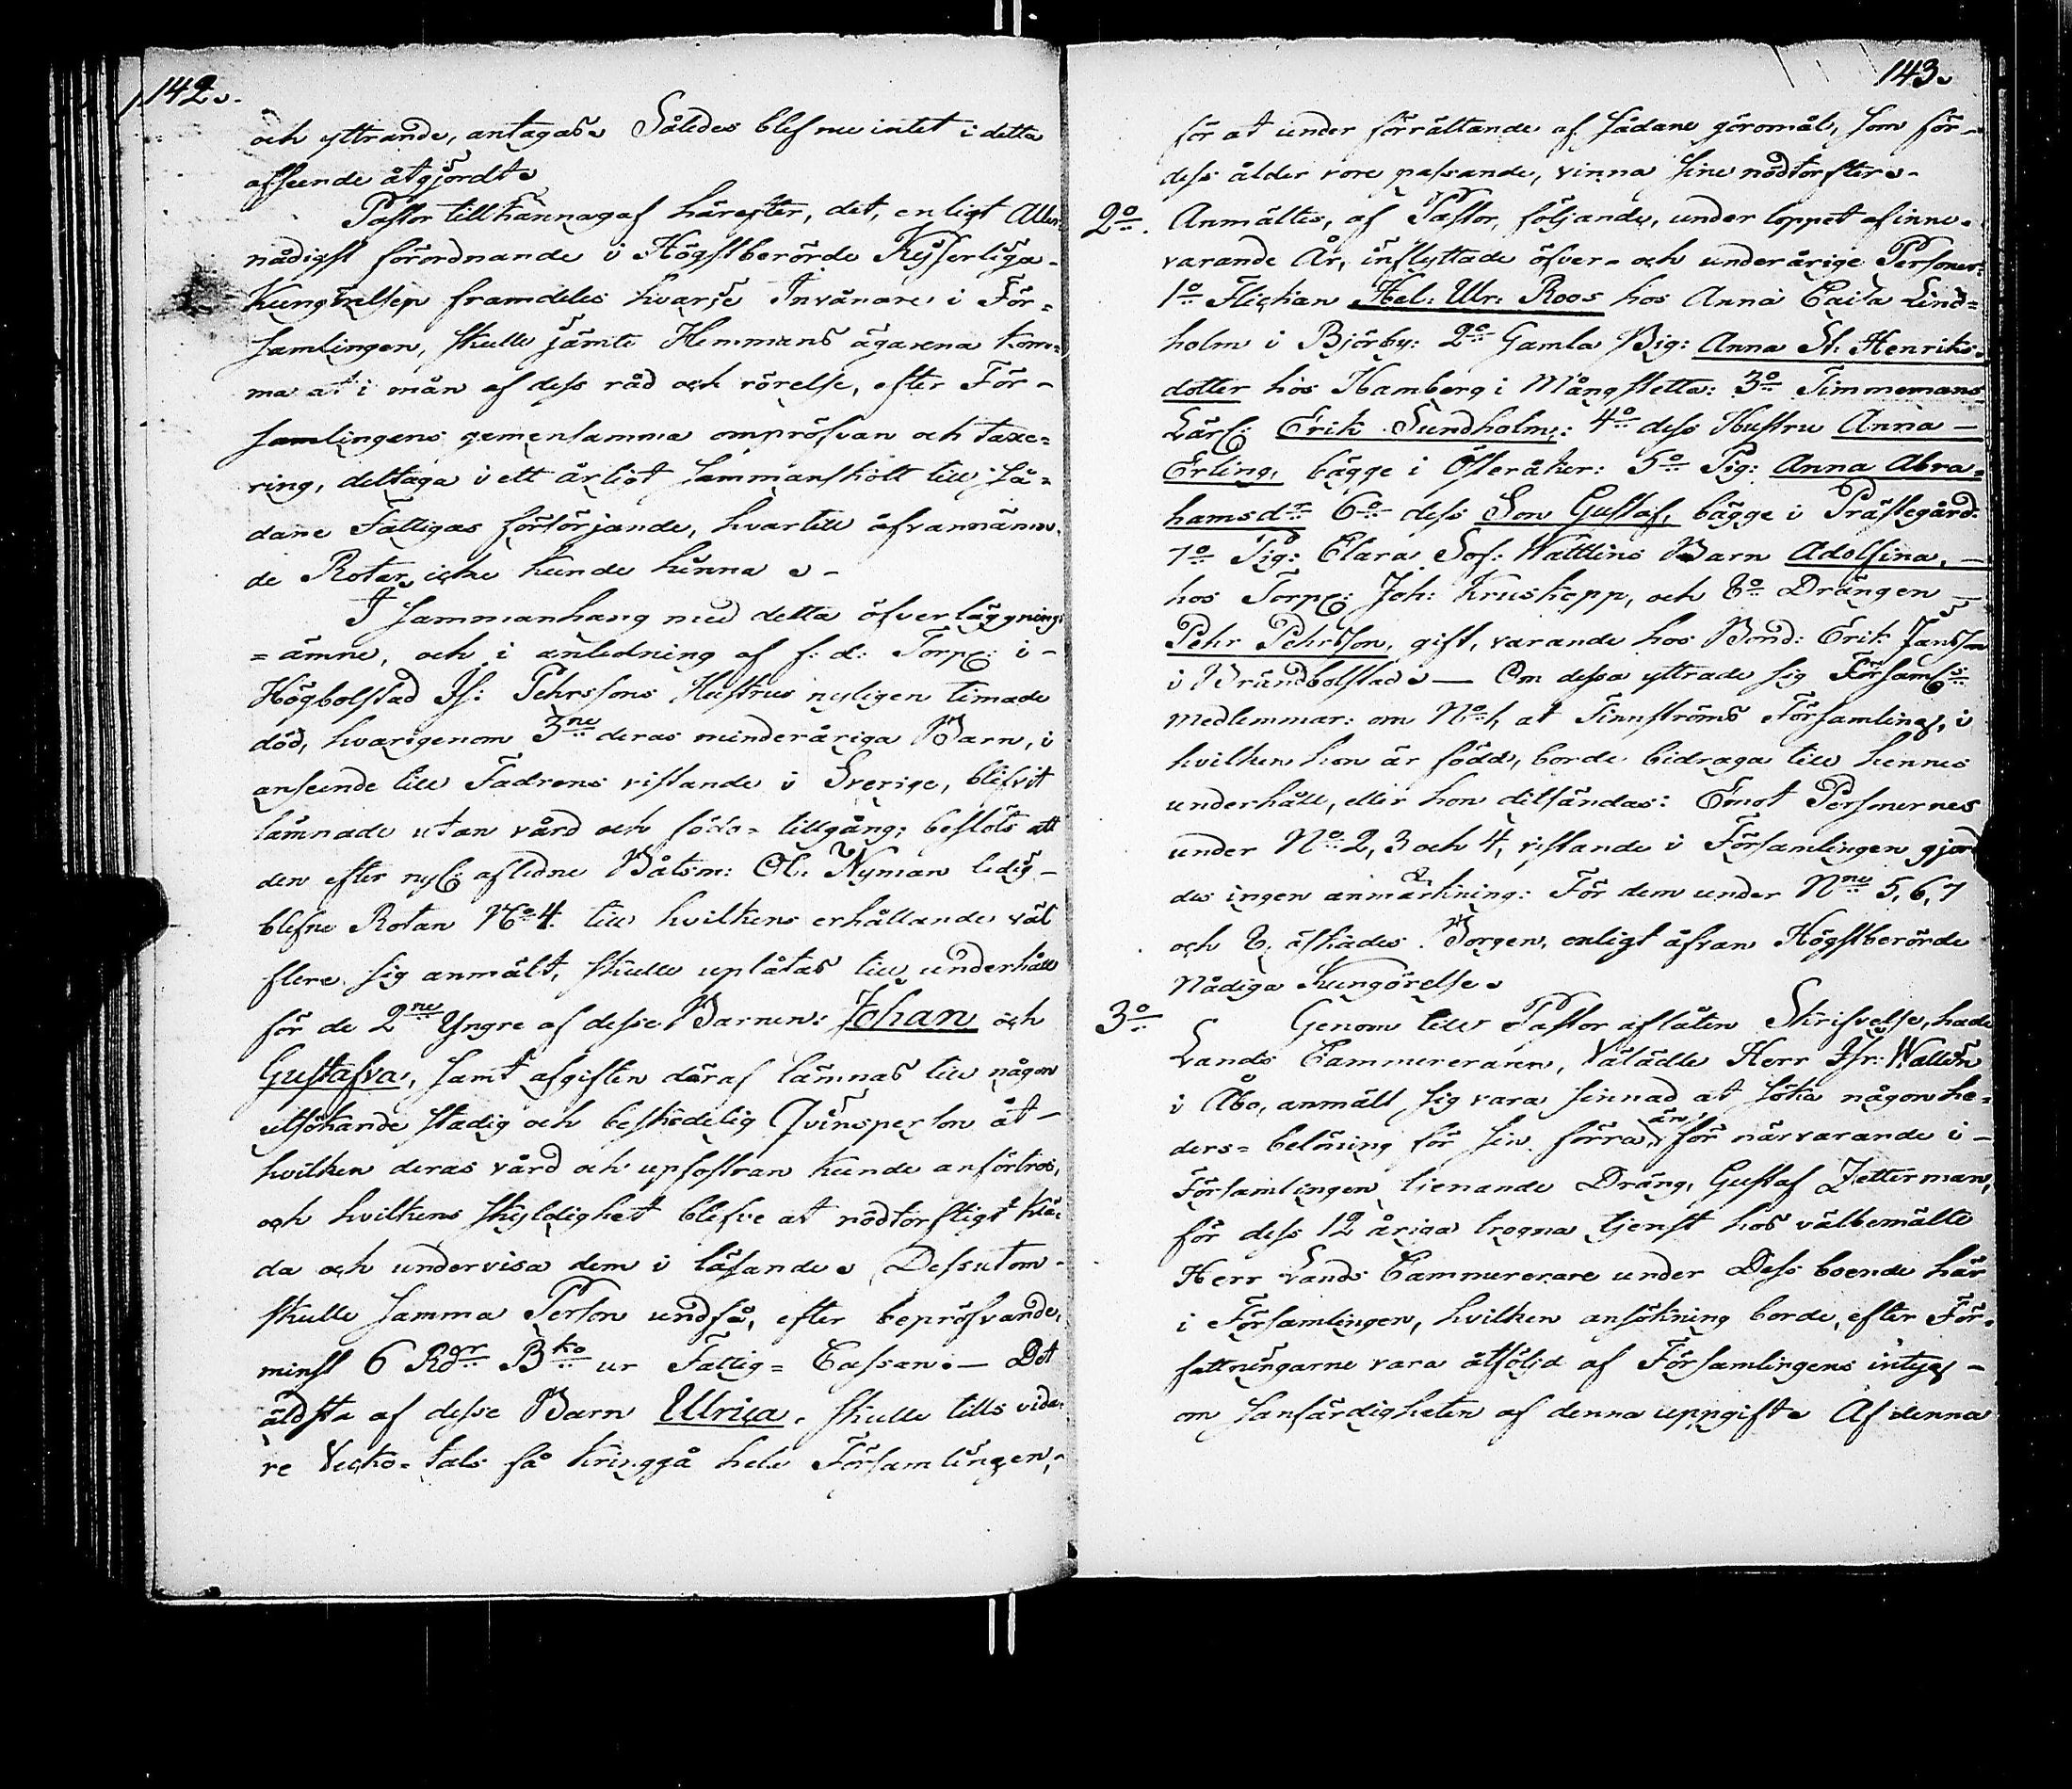 142.
och yttrande, antagas. Således blef nu intet i detta
afseende åtgjordt.
Pastor tillkännagaf härefter, det, enligt Aller-
nådigst förordnande i Högstberörde Keijserliga
Kungörelsen framdeles hvarje Invånare i För=
samlingen, skulle jämte Hemmans ägarena kom=
ma at i mån af dess råd och rörelse, efter För-
samlingens gemensamma ompröfvan och taxe=
ring, deltaga i ett årligt sammanskott till så=
dane Fattigas försörjande, hvartill ofvannämn-
de Rotar icke kunde hinna.
I sammanhang med detta öfverläggnings
=ämne, och i anledning af f: d: Torp: i-
Högbolstad Is: Pehrssons Hustrus nyligen timade
död, hvarigenom 3ne deras minderåriga Barn, i
anseende till Fadrens vistande i Sverige, blifvit
lämnade utan vård och födo=tillgång; beslöts att
den efter nyl: aflidne Båtsm: Ol. Nyman ledig-
blefne Rotan No 4. till hvilkens erhållande väl
flere sig anmält, skulle uplåtas till underhåll
för de 2ne Yngre af desse Barnen: Johan och
Gustafva, samt afgiften däraf lämnas till någon
utsökande stadig och beskedelig Qvinsperson åt-
hvilken deras vård och upfostran kunde anförtros,
och hvilkens skyldighet blefve at nödtorftigt klä=
da och undervisa dem i läsande. Dessutom-
skulle samma Person undfå, efter bepröfvande,
minst 6 Rdr Bko ur Fattig=Cassan.- Det
äldsta af desse Barn Ulrica, skulle tills vida-
re Vecko-tals få kringgå hela Församlingen,-
143.
för at under förrättande af sådane göromål, som för-
dess ålder vore passande, vinna sine nödtorfter.-
2o. Anmältes, af Pastor, följande, under loppet af inne-
varande År, inflyttade öfver- och underårige Personer:
1o Flickan Hel: Ulr: Roos hos Anna Caisa Lind=
holm i Bjørby: 2o Gamla Pig: Anna St. Henriks=
dotter hos Hamberg i Mångstetta: 3o Timmermans
Lärl: Erik Sundholm: 4o dess Hustru Anna -
Erling, bägge i Österåker: 5o Pig: Anna Abra=
hamsdr 6o dess Son Gustaf, bägge i Prästegård:
7o Pig: Clara Sof: Wattlins Barn Adolfina, -
hos Torp: Joh: Kruskopp, och 8o Drängen -
Pehr Pehrsson, gift, varande hos Bond: Erik Jansson
i Brundbolstad.- Om dessa yttrade sig Förs:
medlemmar: om No 1, at Finnströms Församling, i
hvilken hon är född, borde bidraga till hennes
underhåll, eller hon ditsändas: Emot Personernes
under No 2, 3 och 4, vistande i Församlingen gjor
des ingen anmärkning: För dem under Nne 5, 6, 7
och 8. äskades Borgen, enligt ofvan Högstberörde
Nådiga Kungörelse.
3o Genom till Pastor aflåten Skrifvelse, hade
Lands Cammereraren, Välädle Herr Isr: Wallen
i Åbo, anmält sig vara sinnad at söka någon he=
ders=belöning för sin förra, än för närvarande i-
Församlingen tjenande Dräng, Gustaf Zetterman,
för dess 12 åriga trogna tjenst hos välbemälte
Herr Lands Cammererare under Dess boende här
i Församlingen, hvilken ansökning borde, efter För=
fattningarne vara åtföljd af Församlingens intyg-
om sanfärdigheten af denna uppgift. Af denna